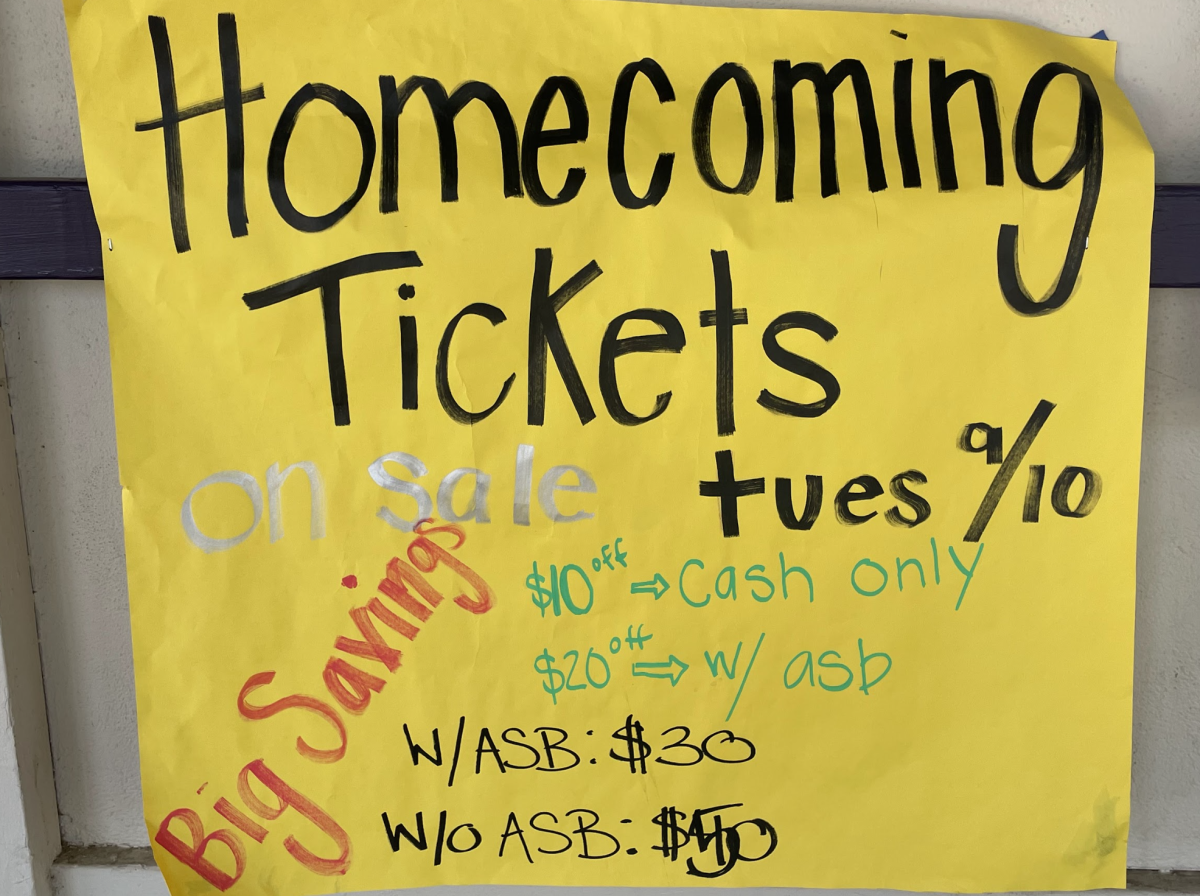 Homecoming
Tickets
on sale tues 9/10
Big Savings
$10 off ⇨ Cash only
$20 off ⇨ w/ asb
W/ASB: $30
W/O ASB: $50